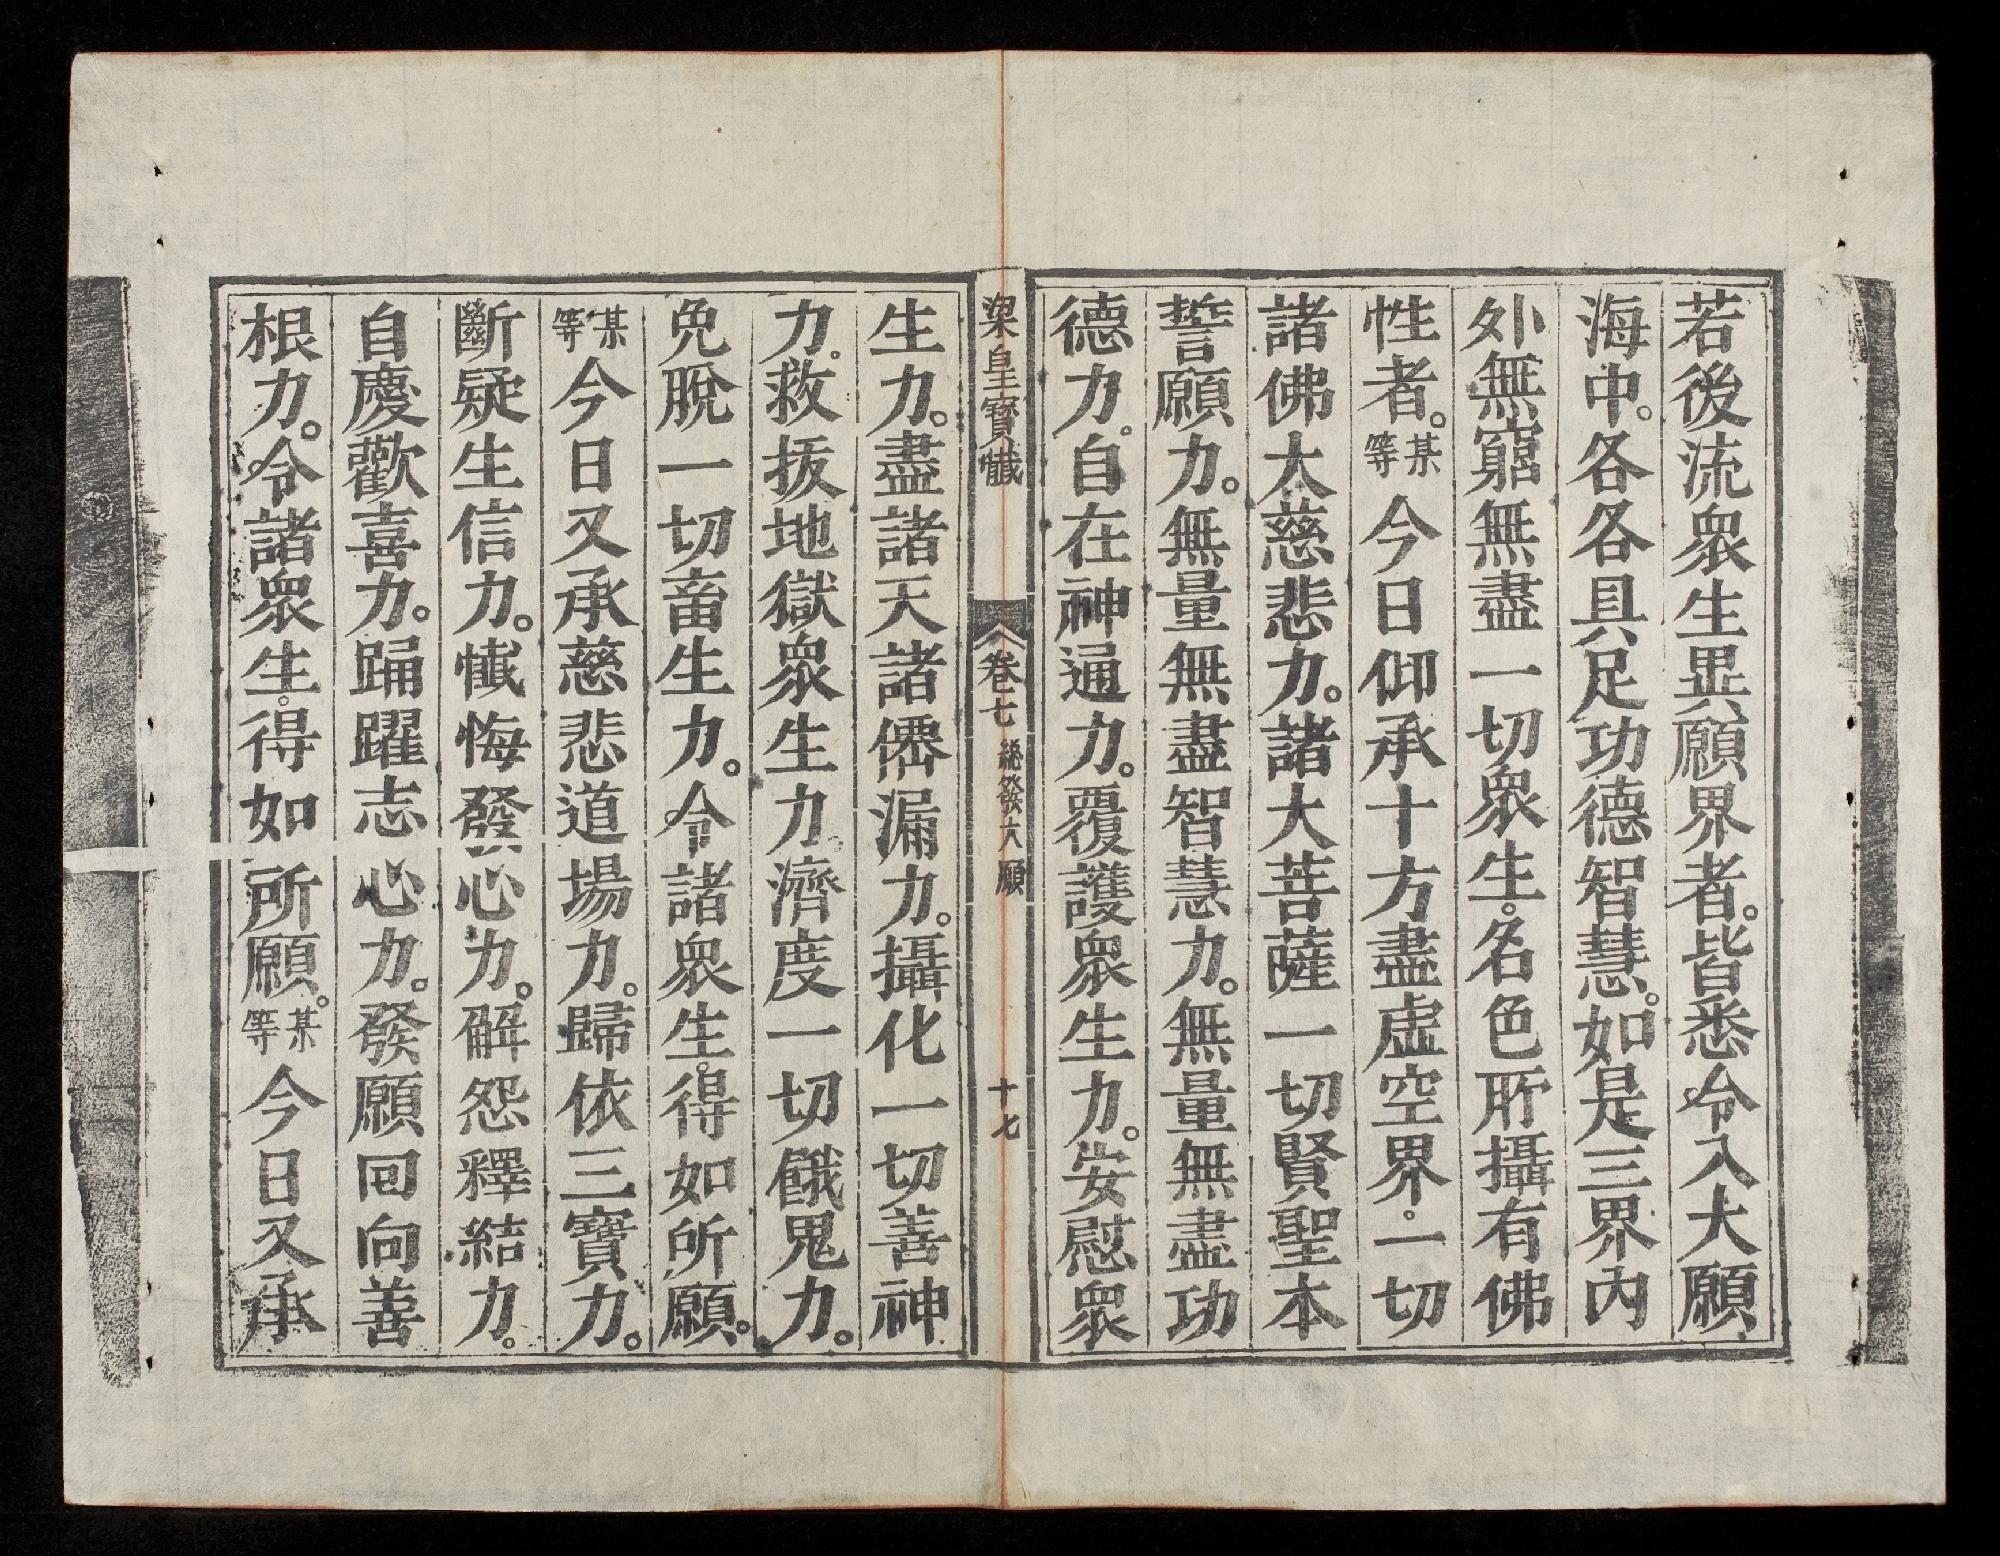 若後流衆生異願界者。皆悉令入大願
海中。各各具足功德智慧。如是三界內
外無窮無盡一切衆生。名色所攝有佛
性者。某等今日仰承十方盡虛空界。一切
諸佛大慈悲力。諸大菩薩一切賢聖本
誓願力。無量無盡智慧力。無量無盡功
德力。自在神通力。覆護衆生力。安慰衆
梁皇寶懺
卷七 總發大願
十七
生力。盡諸天諸僊漏力。攝化一切善神
力。救拔地獄衆生力。濟度一切餓鬼力。
免脫一切畜生力。令諸衆生。得如所願。
某等今日又承慈悲道場力。歸依三寶力。
斷疑生信力。懺悔發心力。解怨釋結力。
自慶歡喜力。踊躍志心力。發願回向善
根力。令諸衆生。得如所願。某等今日又承